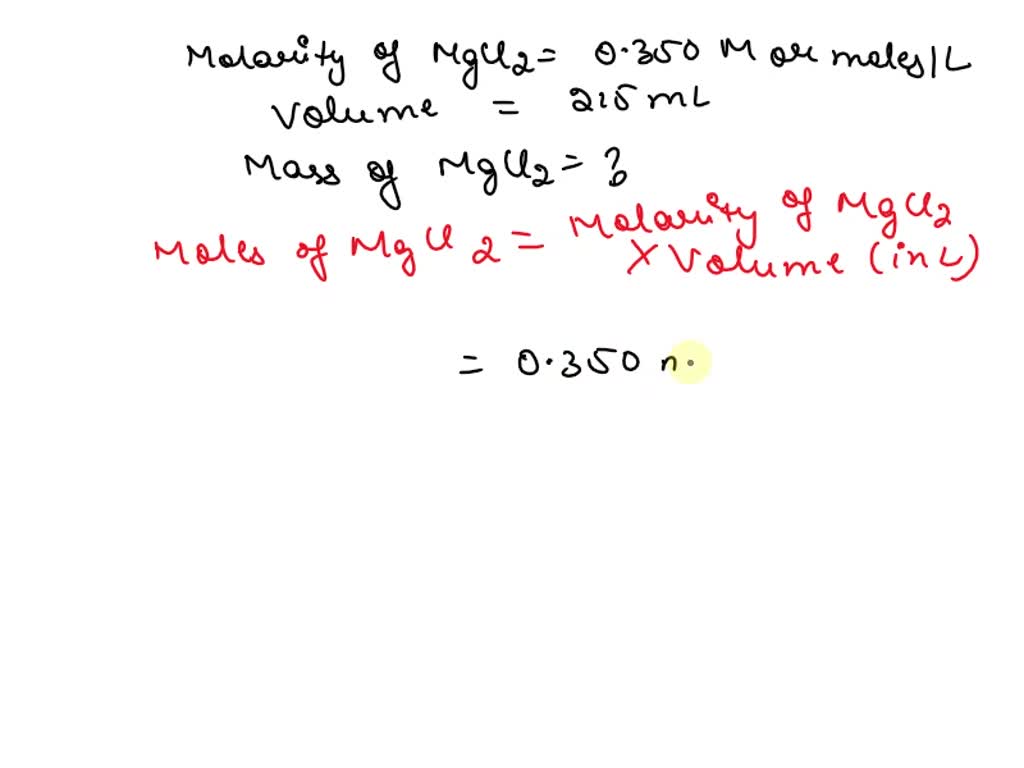 Molarity of MgCl2 = 0.350 M or moles/L
Volume = 215 mL
Mass of MgCl2 = ?
Moles of MgCl2 = Molarity of MgCl2
X Volume (in L)
= 0.350 m